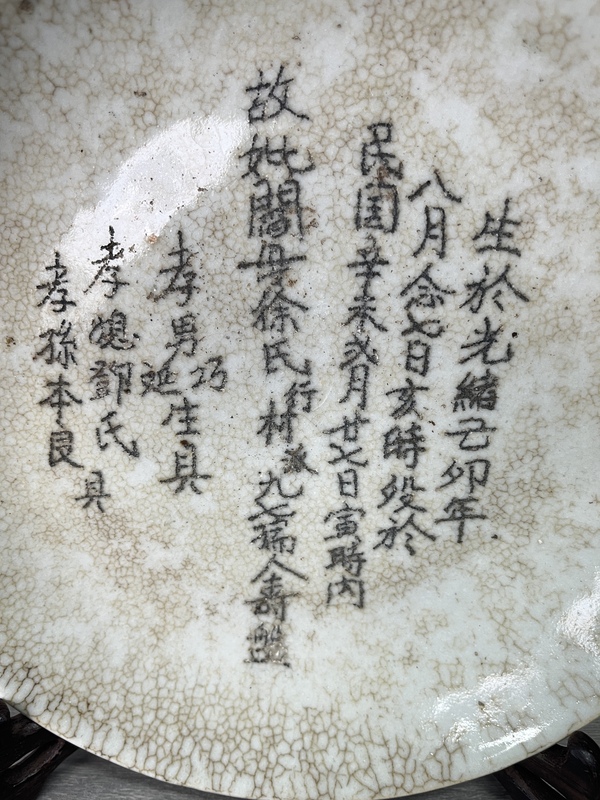 生於光緒己卯年
八月念七日亥時殁於
民国辛未弍月廿七日寅時内
故妣闗母徐氏行材九七孺人壽盤
孝男巧延生具
孝媳鄧氏具
孝孫本良